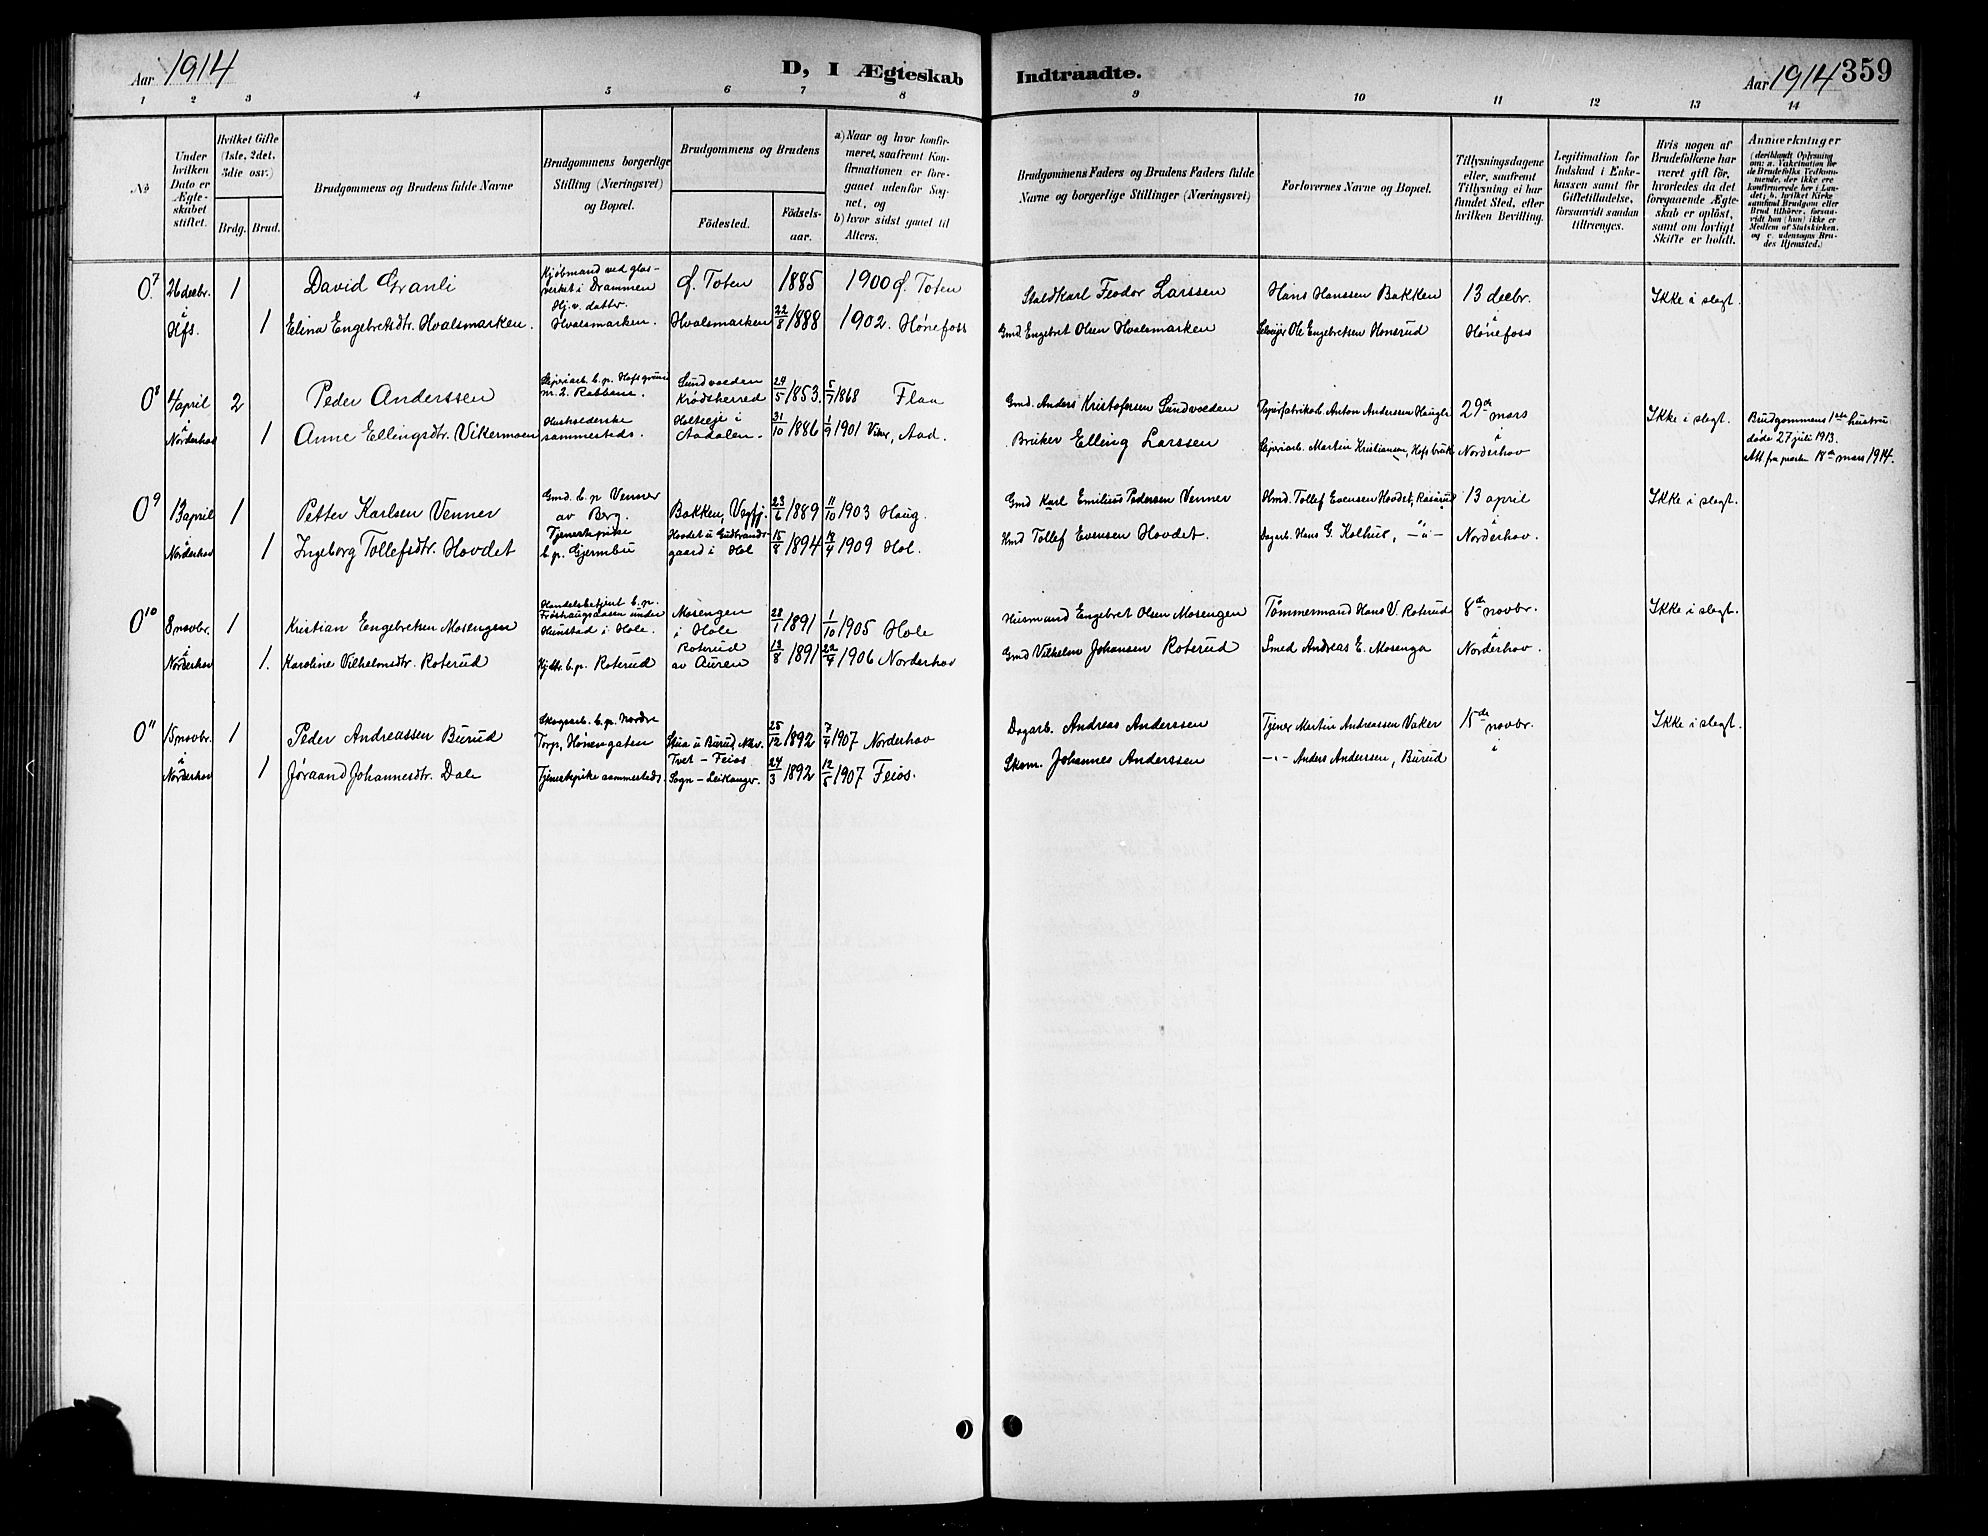 Aar 1914
D, I Ægteskab Indtraadte.
Aar 1914 359
1 2 3 4 5 6 7 8 9 10 11 12 13 14
No
Under hvilken Dato er Ægteskabet stiftet.
Hvilket Gifte (1ste, 2det, 3die osv.)
Brdg. Brud.
Brudgommens og Brudens fulde Navne
Brudgommens borgerlige Stilling (Næringsvei) og Bopæl.
Brudgommens og Brudens
Födested.
Födselsaar.
a) Naar og hvor konfirmeret, saafremt Konfirmationen er foregaaet udenfor Sognet, og
b) hvor sidst gaaet til Alters.
Brudgommens Faders og Brudens Faders fulde Navne og borgerlige Stillinger (Næringsvei)
Forlovernes Navne og Bopæl.
Tillysningsdagene eller, saafremt Tillysning ei har fundet Sted, efter hvilken Bevilling.
Legitimation for Indskud i Enkekassen samt for Giftetilladelse, forsaavidt saadan tiltrænges.
Hvis nogen af Brudefolkene har været gift för, hvorledes da det foregaaende Ægteskab er oplöst, samt om lovligt Skifte er holdt.
Anmærkninger
(deriblandt Oplysning om: a. Vakcination for de Brudefolks Vedkommende, der ikke ere konfirmerede her i Landet; b. hvilket Kirkesamfund Brudgom eller Brud tilhörer, forsaavidt han (hun) ikke er Medlem af Statskirken, og c. udensogns Brudes Hjemsted.)
07. 26 decbr. 1 David Granli Kjøbmand ved glasverket i Drammen Ø. Toten 1885 1900 Ø. Toten Staldkarl Feodor Larssen Hans Hanssen Bakken 13 decbr. Ikke i slegt.
i Hfs. 1 Elina Engebretsdtr. Hvalsmarken. Hj.v. dattr. Hvalsmarken. Hvalsmarken 22/8 1888 1902. Hønefoss Gmd. Engebret Olsen Hvalsmarken Selveier Ole Engebretsen Honerud i Hønefoss
08 4 april 2 Peder Anderssen b.p. Hofsgrund nr. 2. Rabbane. Sundvolden Krødsherred 24/5 1853. 5/7 1868 Flaa Gmd. Anders Kristofersen Sundvolden Papirfabrikarb. Anton Anderssen Haugle 29de mars Ikke i slegt. Brudgommens 1ste hustru døde 27 juli 1913.
i Norderhov 1 Anne Ellingsdtr. Vikermoen Husholderske sammesteds. i Aadalen. 31/10 1886 1/9 1901 Viker, Aad. Bruker Elling Larssen Martin Kristiansen, Hofsbruk i Norderhov Att. fra presten 18de mars 1914.
09 13 april 1 Petter Karlsen Venner Gmd. b.p Venner av Berg. Bakken, 23/6 1889 11/10 1903 Haug. Gmd Karl Emilius Pedersen Venner Hmd. Tollef Evensen Hovdet, 13 april Ikke i slegt.
i Norderhov 1 Ingeborg Tollefsdtr. Hovdet Tjenestepike b.p. Gjermbu Hovdet u Gudbrandsgaard i Hol 15/8 1894 18/4 1909 Hol. Hmd Tollef Evensen Hovdet. Dagarb. Hans G. Kolhus, -"- i Norderhov.
010 8 novbr. 1 Kristian Engebretsen Mosengen Handelsbetjent b.p. Frøshaugsaasen under Hunstad i Hole. Mosengen i Hole 28/1 1891 1/10 1905 Hole Husmand Engebret Olsen Mosengen Tømmermand Hans V. Roterud 8de novbr. Ikke i slegt.
i Norderhov 1. Karoline Vilhelmsdtr. Roterud b.p. Roterud Roterud av Auren 13/8 1891 22/4 1906 Norderhov Gmd Vilhelm Johansen Roterud Smed Andreas E. Mosenga i Norderhov.
011 15 novbr. 1 Peder Andreassen Burud Skogsarb. b.p. Nordre Torp, Hønengaten Stua u Burud, Nhv. 25/12 1892 7/4 1907 Norderhov Dagarb. Andreas Anderssen Tjener Martin Andreassen Vaker 15de novbr. Ikke i slegt.
i Norderhov 1 Jøraand Johannesdtr. Dale Tjenestepike sammesteds. Tvet - Feios Sogn - Leikanger. 24/3 1892 12/5 1907 Feios. Skom. Johannes Anderssen -"- Anders Anderssen, Burud i